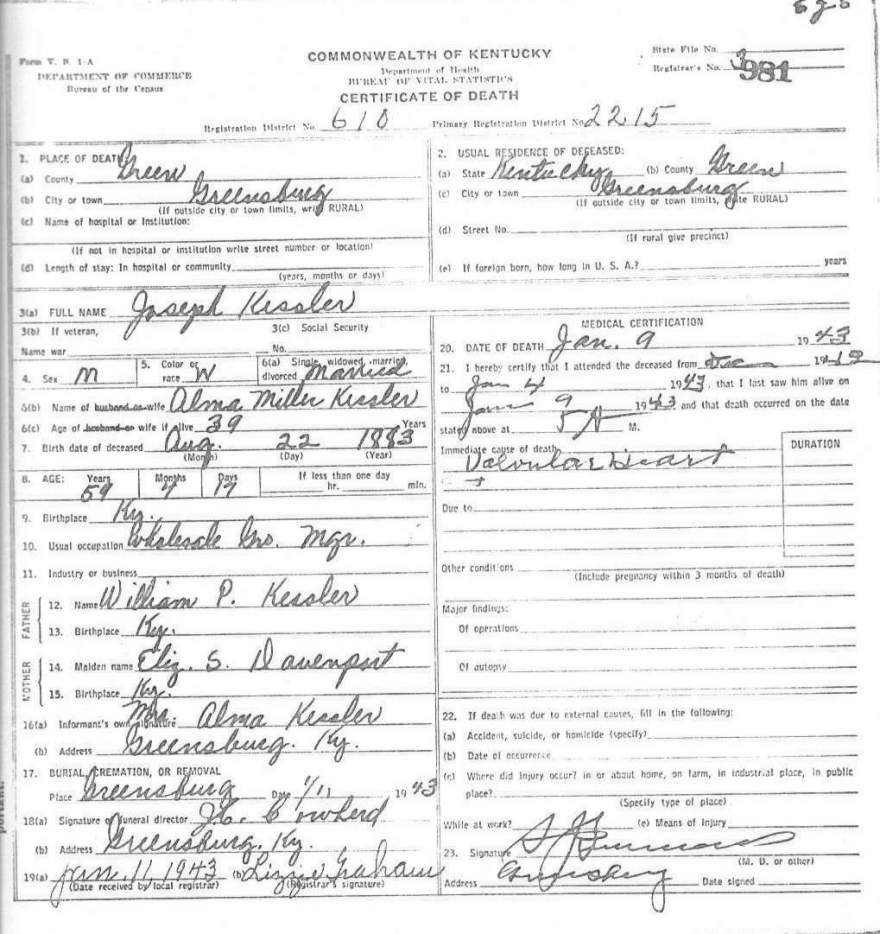 Form V. S. 1-A
DEPARTMENT OF COMMERCE
Bureau of the Census
COMMONWEALTH OF KENTUCKY
Department of Health
BUREAU OF VITAL STATISTICS
CERTIFICATE OF DEATH
State File No.
Registrar's No. 3 981
Registration District No. 610 Primary Registration District No. 2215
1. PLACE OF DEATH:
(a) County Green
(b) City or town Greensburg
(If outside city or town limits, write RURAL)
(c) Name of hospital or institution:
(If not in hospital or institution write street number or location)
(d) Length of stay: In hospital or community
(years, months or days)
2. USUAL RESIDENCE OF DECEASED:
(a) State Kentucky (b) County Green
(c) City or town Greensburg
(If outside city or town limits, write RURAL)
(d) Street No.
(If rural give precinct)
(e) If foreign born, how long in U. S. A.? years
3(a) FULL NAME Joseph Kessler
3(b) If veteran,
Name war
3(c) Social Security
No.
4. Sex M
5. Color or race W
6(a) Single, widowed, married, divorced Married
6(b) Name of husband or wife Alma Miller Kessler
6(c) Age of husband or wife if alive 39 Years
7. Birth date of deceased Aug. 22 1883
(Month) (Day) (Year)
8. AGE: Years Months Days If less than one day
59 4 17 hr. min.
9. Birthplace Ky.
10. Usual occupation Wholesale Gro. Mgr.
11. Industry or business
FATHER
12. Name William P. Kessler
13. Birthplace Ky.
MOTHER
14. Maiden name Eliz. S. Davenport
15. Birthplace Ky.
16(a) Informant's own signature Mrs. Alma Kessler
(b) Address Greensburg. Ky.
17. BURIAL, CREMATION, OR REMOVAL
Place Greensburg Date 1/11 1943
18(a) Signature of funeral director J.C. Cowherd
(b) Address Greensburg, Ky.
19(a) Jan. 11, 1943 (b) Lizzie Graham
(Date received by local registrar) (Registrar's signature)
MEDICAL CERTIFICATION
20. DATE OF DEATH Jan. 9 1943
21. I hereby certify that I attended the deceased from Dec 19
to Jan 4 1943, that I last saw him alive on
Jan 9 1943 and that death occurred on the date
stated above at 5 A M.
Immediate cause of death DURATION
Valvular Heart
Due to
Other conditions
(Include pregnancy within 3 months of death)
Major findings:
Of operations
Of autopsy
22. If death was due to external causes, fill in the following:
(a) Accident, suicide, or homicide (specify)
(b) Date of occurrence
(c) Where did injury occur? in or about home, on farm, in industrial place, in public
place?
(Specify type of place)
While at work? (e) Means of injury
23. Signature
(M. D. or other)
Address Greensburg Date signed